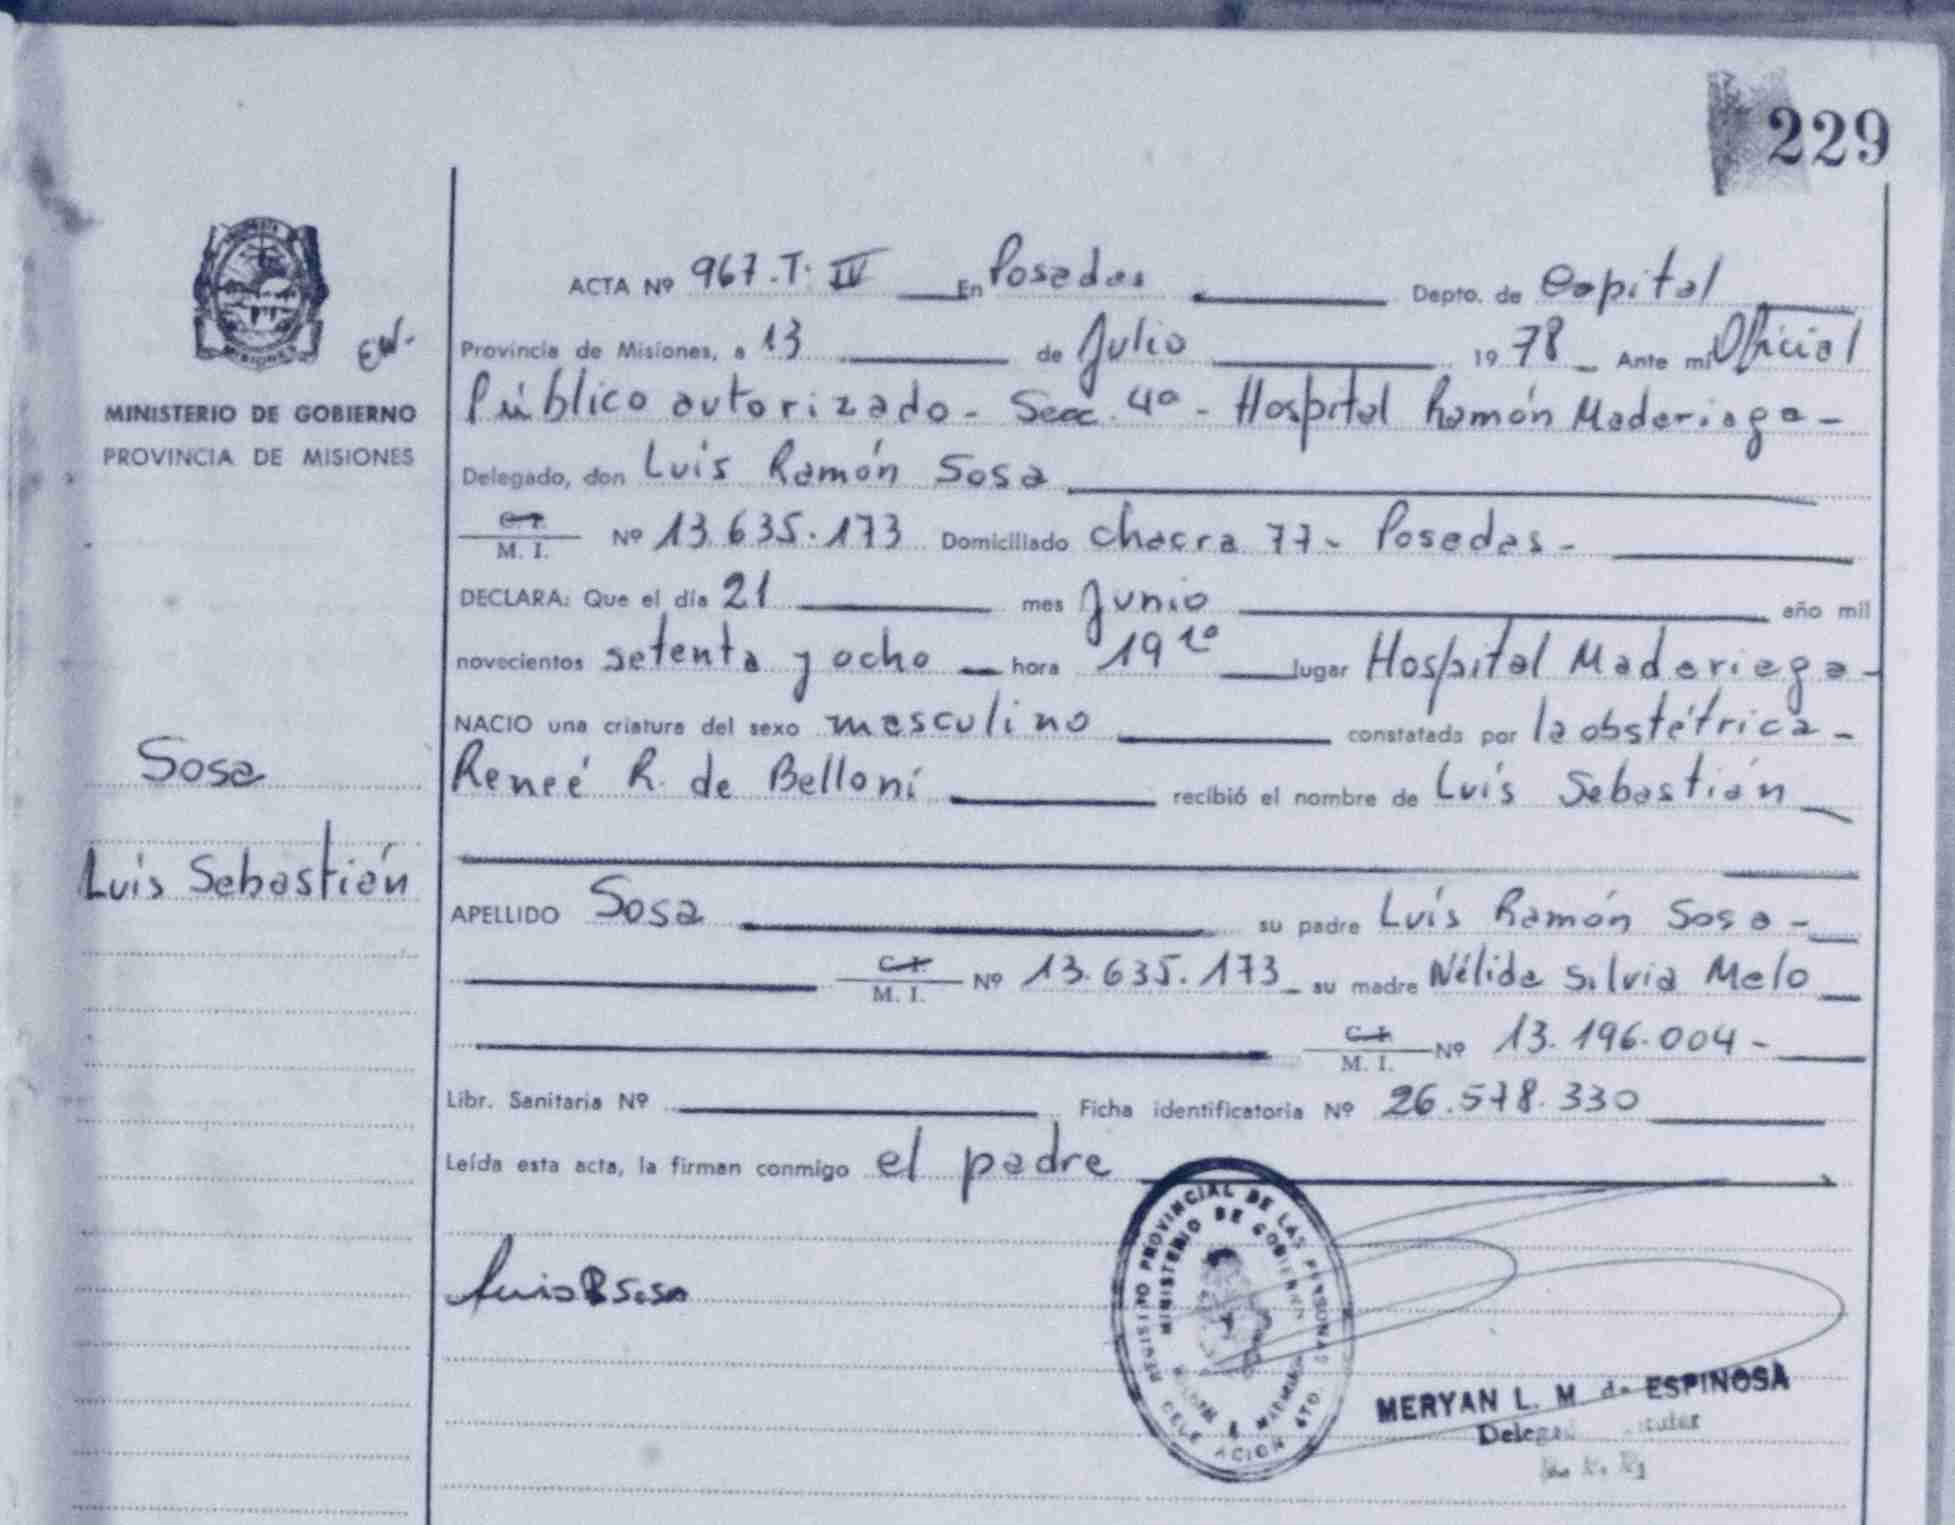 229
ACTA Nº 967.T. IV En Posadas Depto. de Capital
Provincia de Misiones, a 13 de Julio 1978 Ante mi Oficial
Público autorizado - Secc. 4º - Hospital Ramón Madariaga -
Delegado, don Luis Ramón Sosa
C. I.
M. I. Nº 13.635.173 Domiciliado chacra 77 - Posadas -
DECLARA: Que el día 21 mes Junio año mil
novecientos setenta y ocho hora 19 lugar Hospital Madariaga -
NACIO una criatura del sexo masculino constatada por la obstétrica -
Reneé R. de Belloni recibió el nombre de Luis Sebastián
APELLIDO Sosa su padre Luis Ramón Sosa -
C. I.
M. I. Nº 13.635.173 su madre Nélida Silvia Melo
C. I.
M. I. Nº 13.196.004 -
Libr. Sanitaria Nº Ficha identificatoria Nº 26.578.330
Leída esta acta, la firman conmigo el padre
Luis R Sosa
MISIONES
MINISTERIO DE GOBIERNO
PROVINCIA DE MISIONES
Sosa
Luis Sebastián
PROVINCIAL DE LAS PERSONAS
MINISTERIO DE GOBIERNO
MERYAN L. M. de ESPINOSA